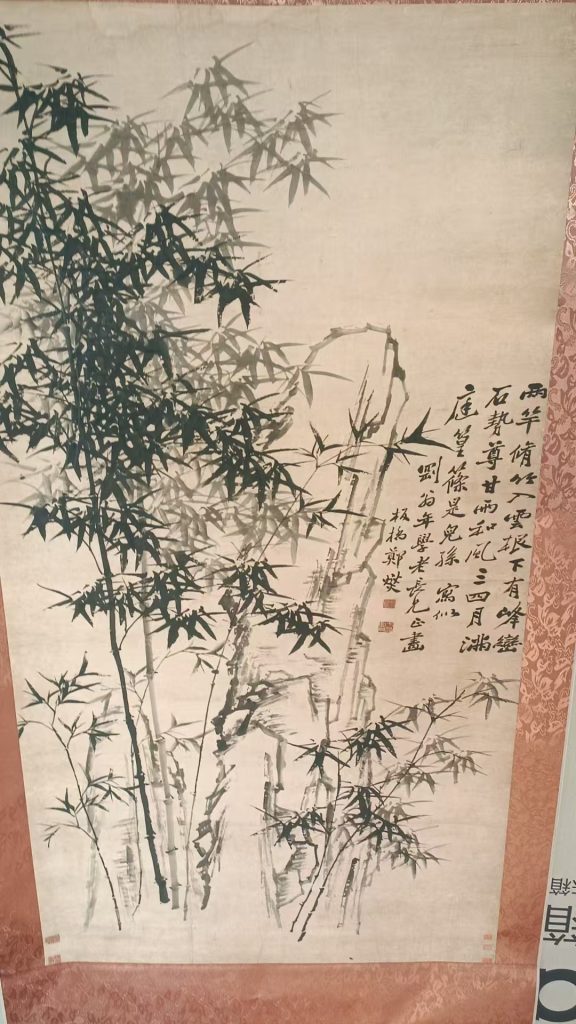 兩竿脩竹入雲根下有峰巒
石勢尊甘雨和風三四月滿
庭篁篠是兒孫 寫似
劉翁年學老長兄正畫
板橋鄭燮
箱
箱